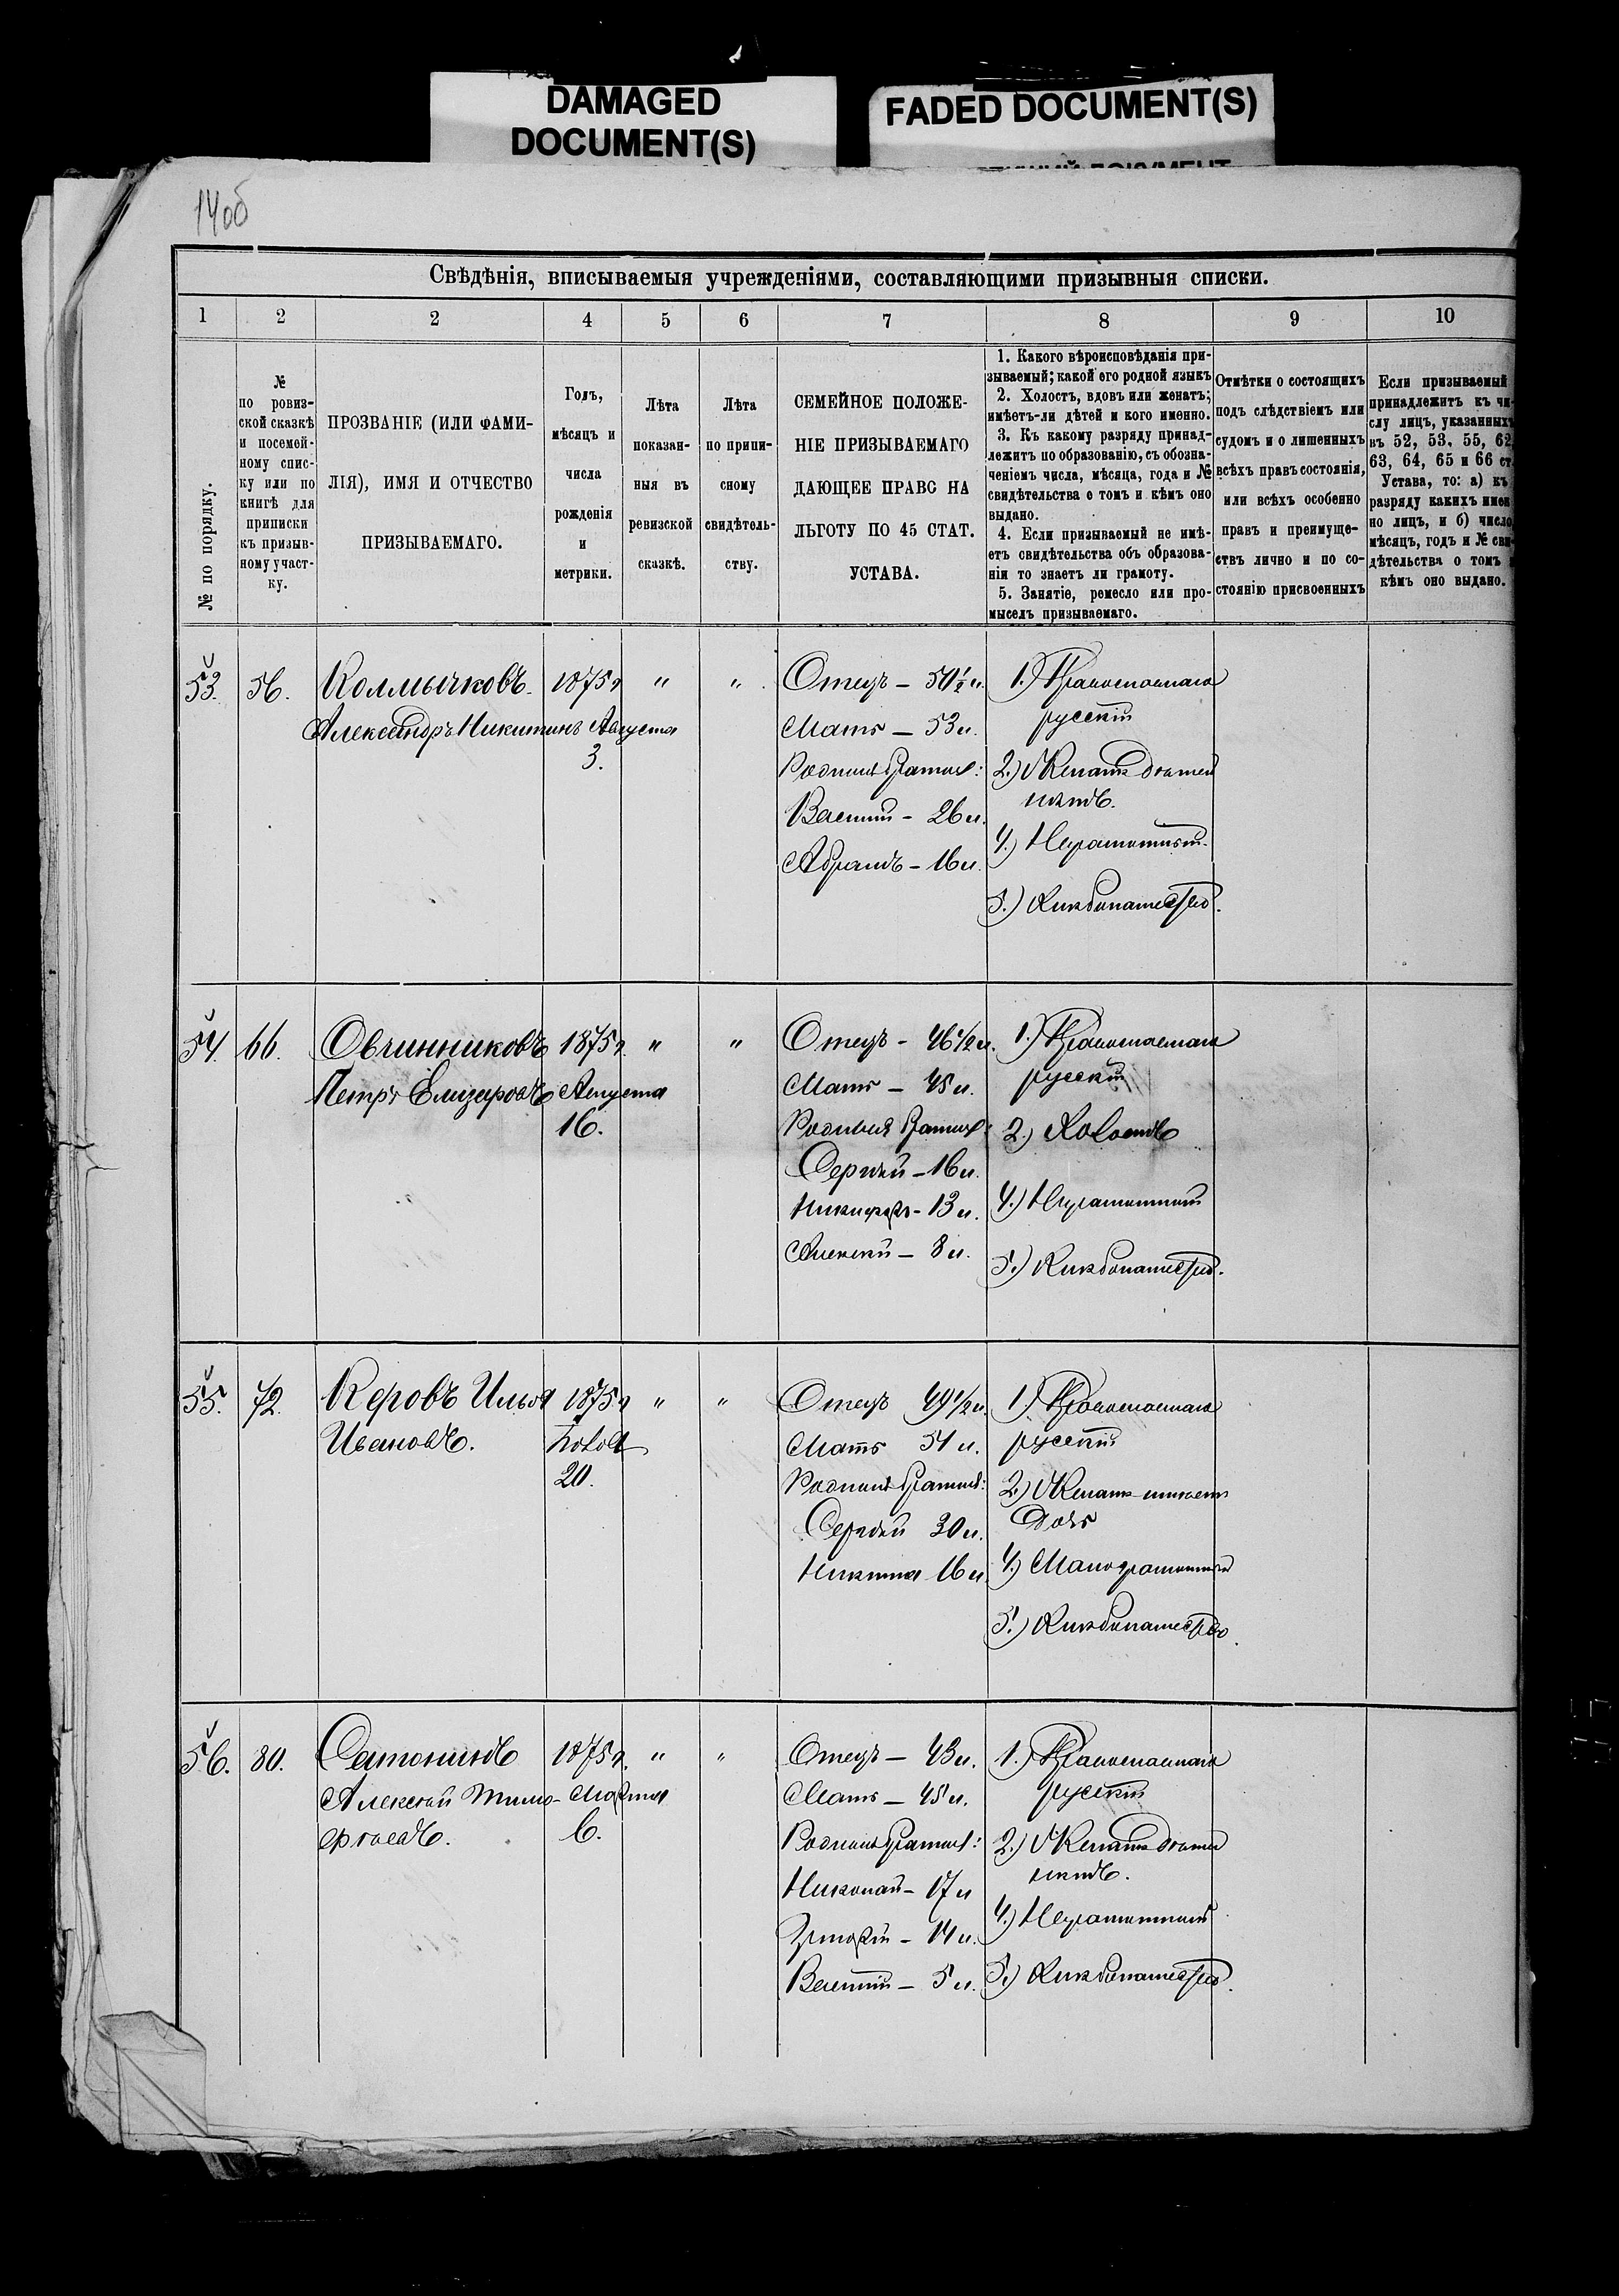 DAMAGED
DOCUMENT(S)
FADED DOCUMENT(S)
14об
Свѣдѣнія, вписываемыя учрежденіями, составляющими призывныя списки.
1 2 2 4 5 6 7 8 9 10
№ по порядку.
№
по ровиз-
ской сказкѣ
и посемей-
ному спис-
ку или по
книгѣ для
приписки
къ призыв-
ному участ-
ку.
ПРОЗВАНІЕ (ИЛИ ФАМИ-
ЛІЯ), ИМЯ И ОТЧЕСТВО
ПРИЗЫВАЕМАГО.
Годъ,
мѣсяцъ и
числа
рожденія
и
метрики.
Лѣта
показан-
ныя въ
ревизской
сказкѣ.
Лѣта
по припи-
сному
свидѣтель-
ству.
СЕМЕЙНОЕ ПОЛОЖЕ-
НІЕ ПРИЗЫВАЕМАГО
ДАЮЩЕЕ ПРАВО НА
ЛЬГОТУ ПО 45 СТАТ.
УСТАВА.
1. Какого вѣроисповѣданія при-
зываемый; какой его родной языкъ
2. Холостъ, вдовъ или женатъ;
имѣетъ-ли дѣтей и кого именно.
3. Къ какому разряду принад-
лежитъ по образованію, съ обозна-
ченіемъ числа, мѣсяца, года и №
свидѣтельства о томъ и кѣмъ оно
выдано.
4. Если призываемый не имѣ-
етъ свидѣтельства объ образова-
ніи то знаетъ ли грамоту.
5. Занятіе, ремесло или про-
мыселъ призываемаго.
Отмѣтки о состоящихъ
подъ слѣдствіемъ или
судомъ и о лишенныхъ
всѣхъ правъ состоянія,
или всѣхъ особенно
правъ и преимуще-
ствъ лично и по со-
стоянію присвоенныхъ
Если призываемый
принадлежитъ къ чи-
слу лицъ, указанныхъ
въ 52, 53, 55, 62
63, 64, 65 и 66 ст.
Устава, то: а) къ
разряду какихъ имен
но лицъ, и б) число,
мѣсяцъ, годъ и № сви-
дѣтельства о томъ
кѣмъ оно выдано.
53. 56. Колмычковъ
Александръ Никитинъ
1875 г.
Августа
3.
" "
Отецъ – 50½ л.
Мать – 53 л.
Родныя братья:
Василій – 26 л.
Абрамъ – 16 л.
1.) Православнаго
русскій
2.) Женатъ дѣтей
нѣтъ.
4.) Неграмотный
5.) Хлѣбопашество.
54. 66. Овчинниковъ
Петръ Елизаровъ
1875 г.
Августа
16.
" "
Отецъ – 46½ л.
Мать – 45 л.
Родныя братья:
Сергѣй – 16 л.
Никифоръ – 13 л.
Алексѣй – 8 л.
1.) Православнаго
русскій
2.) Холостъ
4.) Неграмотный
5.) Хлѣбопашество.
55. 72. Керовъ Илья
Ивановъ.
1875 г.
20.
" "
Отецъ 49½ л.
Мать 51 л.
Родныя братья:
Сергѣй 30 л.
Никита 16 л.
1.) Православнаго
русскій
2.) Женатъ имѣетъ
дочь
4.) Малограмотный
5.) Хлѣбопашество.
56. 80.
Алексѣй Тимо-
фѣевъ.
1875 г.
Марта
6.
" "
Отецъ – 43 л.
Мать – 45 л.
Родныя братья:
Николай – 17 л.
– 14 л.
Василій – 5 л.
1.) Православнаго
русскій
2.) Женатъ дѣтей
нѣтъ.
4.) Неграмотный
5.) Хлѣбопашество.